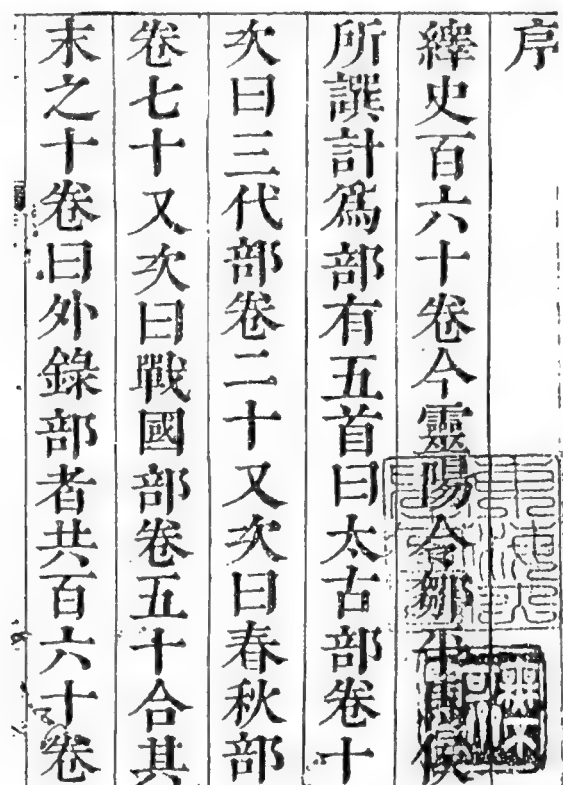 序
繹史百六十卷今靈陽令鄒平馬侯
所譔計爲部有五首曰太古部卷十
次曰三代部卷二十又次曰春秋部
卷七十又次曰戰國部卷五十合其
末之十卷曰外錄部者共百六十卷